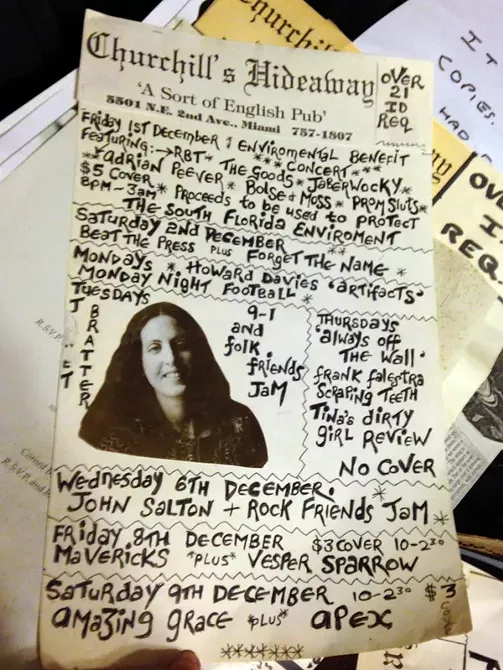 Churchill's Hideaway
'A Sort of English Pub'
5501 N.E. 2nd Ave., Miami 757-1807
OVER
21
ID
REQ
FRIDAY 1ST DECEMBER ENVIROMENTAL BENEFIT
FEATURING:→RBT* THE GOODS* ***CONCERT***
JABERWOCKY*
*ADRIAN PEEVER* BOLSE & MOSS* PROM SLUTS*
$5 COVER
8PM~3AM* PROCEEDS TO BE USED TO PROTECT
THE SOUTH FLORIDA ENVIROMENT
SATURDAY 2ND DECEMBER
BEAT THE PRESS PLUS FORGET THE NAME *
MONDAYS * HOWARD DAVIES 'ARTIFACTS'
MONDAY NIGHT FOOTBALL *
TUESDAYS
BRATTER
9-1
and
folk
friends
JAM
THURSDAYS
'always off
THE WALL'
FRANK FALESTRA
SCRAPING TEETH
TINA'S DIRTY
GIRL REVIEW
NO COVER
WEDNESDAY 6TH DECEMBER.
JOHN SALTON + ROCK FRIENDS JAM *
FRIDAY 8TH DECEMBER $3 COVER 10-2³⁰
MAVERICKS *PLUS* VESPER SPARROW
SATURDAY 9TH DECEMBER 10-2³⁰ $3
AMAZING GRACE *PLUS* APEX
*******
IT
COPIES.
HAD
OVE
I
REQ
R.S.V.P.